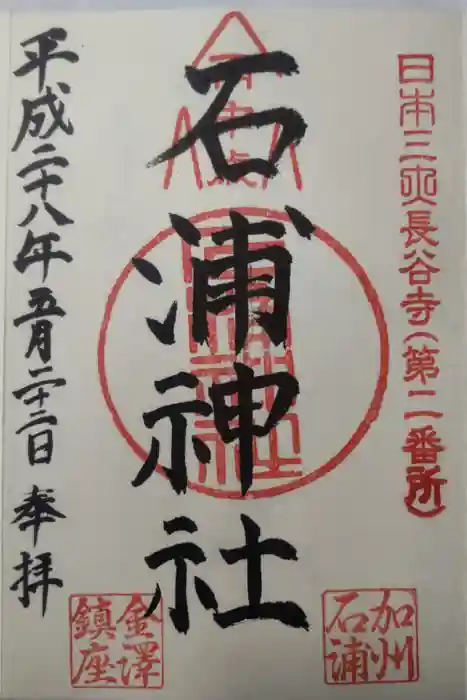 日本三夾長谷寺(第二番所)
石浦神社
平成二十八年五月二十二日 奉拝
加州
石浦
金澤
鎮座